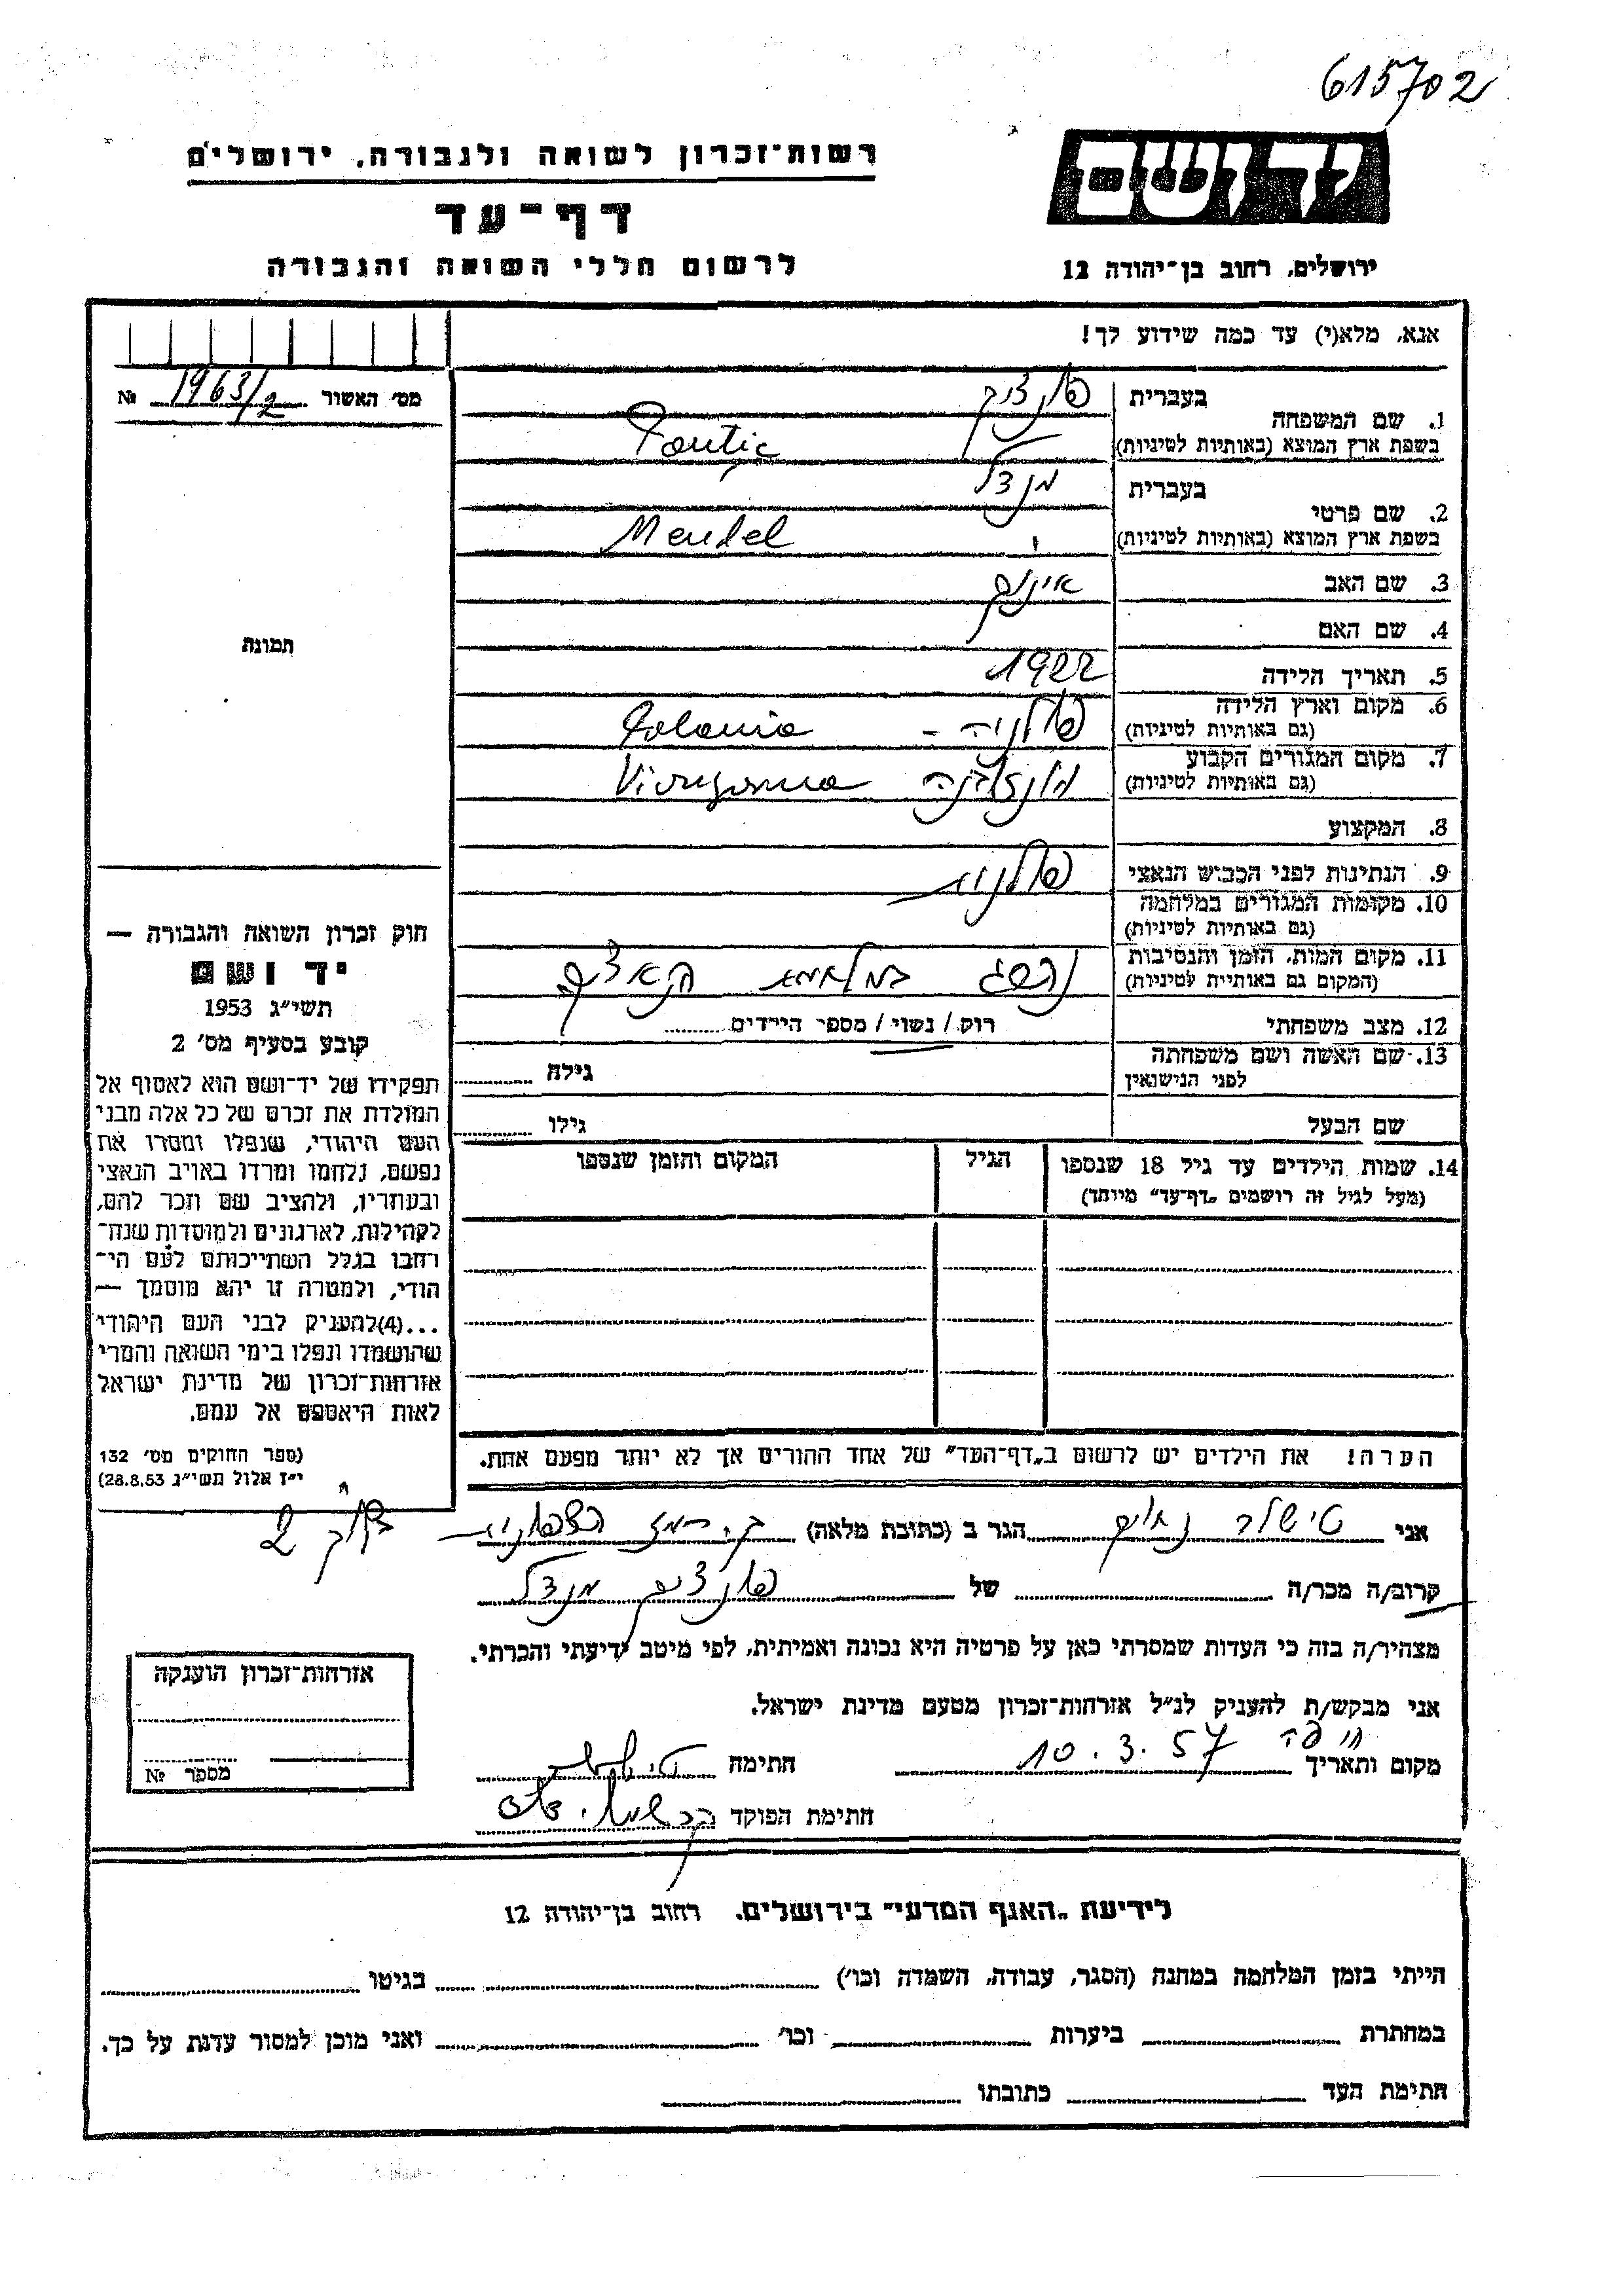 615702
יד ושם
רשות־זכרון לשואה ולגבורה, ירושלים
דף־עד
לרשום חללי השואה והגבורה
ירושלים, רחוב בן־יהודה 12
אנא, מלא(י) עד כמה שידוע לך!
מס׳ האשור 1963/2 №
1. שם המשפחה
בעברית
בשפת ארץ המוצא (באותיות לטיניות)
2. שם פרטי
בעברית מנדל
בשפת ארץ המוצא (באותיות לטיניות) Mendel
3. שם האב
4. שם האם
5. תאריך הלידה 1922
6. מקום וארץ הלידה
(גם באותיות לטיניות) פולניה - Polania
7. מקום המגורים הקבוע
(גם באותיות לטיניות)
8. המקצוע
9. הנתינות לפני הכבוש הנאצי פולנית
10. מקומות המגורים במלחמה
(גם באותיות לטיניות)
11. מקום המות, הזמן והנסיבות
(המקום גם באותיית לטיניות)
12. מצב משפחתי רווק / נשוי / מספר הילדים
13. שם האשה ושם משפחתה
לפני הנישואין גילה
שם הבעל גילו
14. שמות הילדים עד גיל 18 שנספו הגיל המקום והזמן שנספו
(מעל לגיל זה רושמים „דף־עד״ מיוחד)
הערה! את הילדים יש לרשום ב„דף־העד״ של אחד ההורים אך לא יותר מפעם אחת.
תמונה
חוק זכרון השואה והגבורה —
יד ושם
תשי״ג 1953
קובע בסעיף מס׳ 2
תפקידו של יד־ושם הוא לאסוף אל
המולדת את זכרם של כל אלה מבני
העם היהודי, שנפלו ומסרו את
נפשם, נלחמו ומרדו באויב הנאצי
ובעוזריו, ולהציב שם וזכר להם,
לקהילות, לארגונים ולמוסדות שנח־
רחבו בגלל השתייכותם לעם הי־
הודי, ולמטרה זו יהא מוסמך —
...(4)להעניק לבני העם היהודי
שהושמדו ונפלו בימי השואה והמרי
אזרחות־זכרון של מדינת ישראל
לאות היאספם אל עמם.
(ספר החוקים מס׳ 132
י״ז אלול תשי״ג 28.8.53)
אני טישלר הגר ב (כתובת מלאה) 2
קרוב/ה מכר/ה של מנדל
מצהיר/ה בזה כי העדות שמסרתי כאן על פרטיה היא נכונה ואמיתית, לפי מיטב ידיעתי והכרתי.
אני מבקש/ת להעניק לנ״ל אזרחות־זכרון מטעם מדינת ישראל.
מקום ותאריך חיפה 10.3.57 חתימה
חתימת הפוקד
אזרחות־זכרון הוענקה
מספר №
לידיעת „האגף המדעי״ בירושלים. רחוב בן־יהודה 12
הייתי בזמן המלחמה במחנה (הסגר, עבודה, השמדה וכו׳) בגיטו
במחתרת ביערות וכו׳ ואני מוכן למסור עדות על כך.
חתימת העד כתובתו